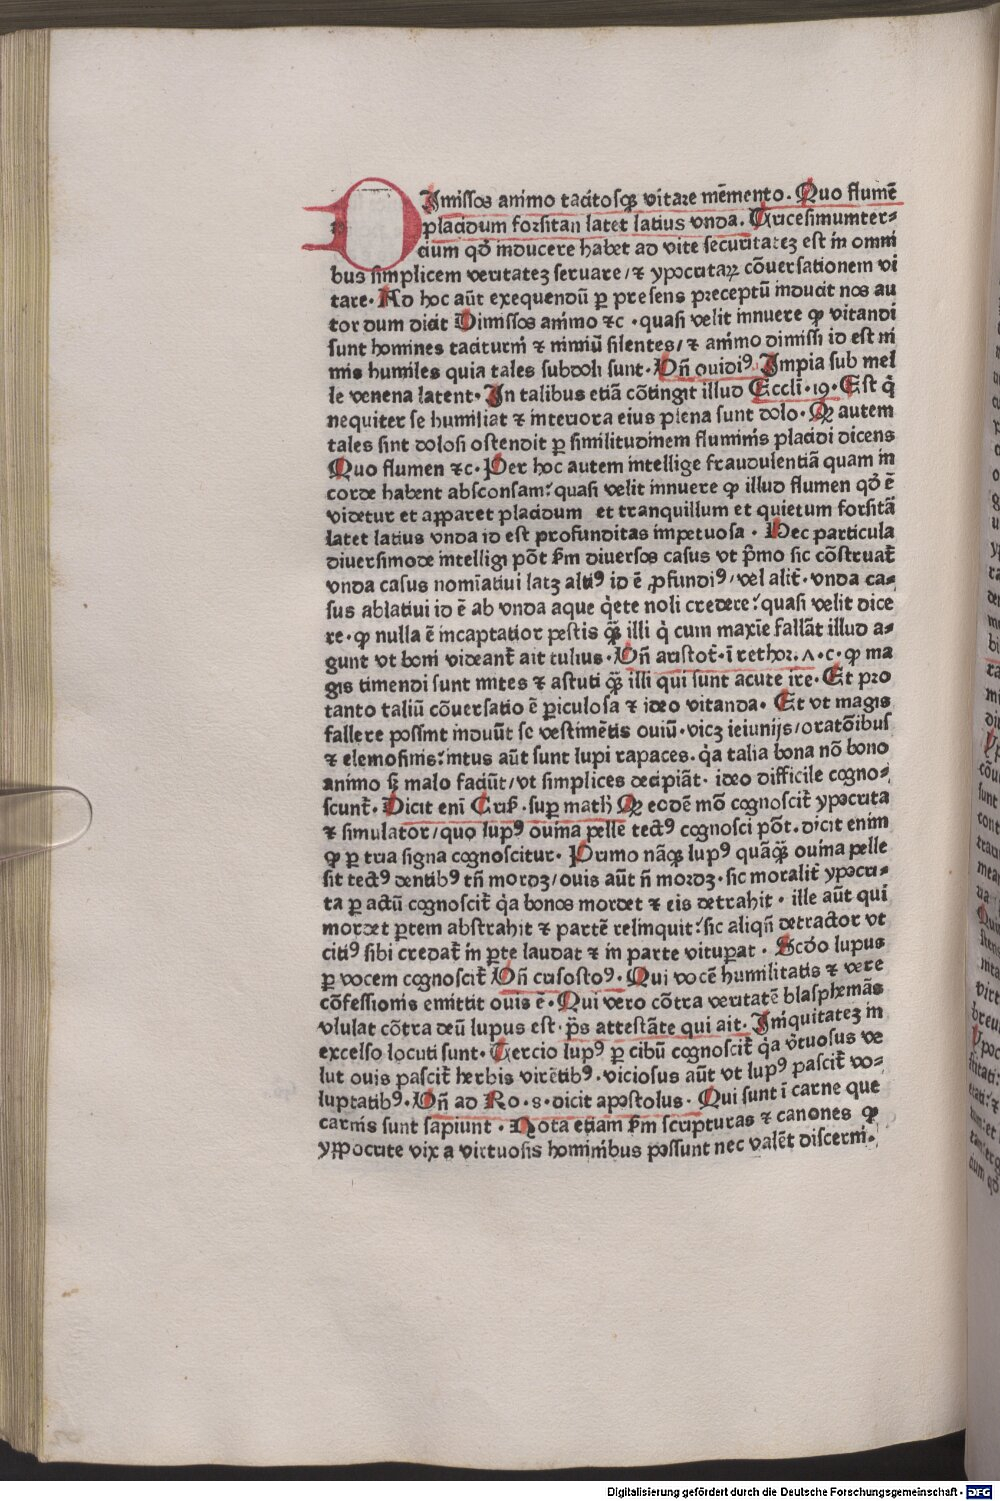 DImissos animo tacitosqꝫ vitare mēmento. Quo flumē
placidum forsitan latet latius vnda. Tricesimumter-
cium qd̓ inducere habet ad vite securitateꝫ est in omni
bus simplicem veritateꝫ seruare/ ⁊ ypocritaꝝ cōuersationem vi
tare. Ad hoc aūt exequendū ꝑ presens preceptū inducit nos au
tor dum dicit Dimissos animo ⁊c ·quasi velit innuere ꝙ vitandi
sunt homines taciturni ⁊ nimiū silentes/ ⁊ animo dimissi id est ni
mis humiles quia tales subdoli sunt. Vn̄ ouidiꝰ. Impia sub mel
le venena latent. In talibus etiā cōtingit illud Eccli.19.Est q̇
nequiter se humiliat ⁊ interiora eius plena sunt dolo. Qꝫ autem
tales sint dolosi ostendit ꝑ similitudinem fluminis placidi dicens
Quo flumen ⁊c. Per hoc autem intellige fraudulentiā quam in
corde habent absconsam: quasi velit innuere ꝙ illud flumen qd̓ ē
videtur et apparet placidum et tranquillum et quietum forsitā
latet latius vnda id est profunditas impetuosa . Hec particula
diuersimode intelligi pōt ẜm diuersos casus vt pͥmo sic cōstruat̄
vnda casus nominatiui latꝫ altiꝰ id ē ꝓfundiꝰ/ vel alit̄. vnda ca-
sus ablatiui id ē ab vnda aque q̇ete noli credere: quasi velit dice
re. ꝙ nulla ē incaptatior pestis qꝫ̄ illi q̇ cum maxīe fallāt illud a-
gunt vt boni videant̄ ait tulius. Vn̄ aristot̄.ī rethor.ʌ.c. ꝙ ma
gis timendi sunt mites ⁊ astuti qꝫ̄ illi qui sunt acute ire. Et pro
tanto taliū cōuersatio ē ꝑiculosa ⁊ ideo vitanda. Et vt magis
fallere possint induūt se vestimētis ouiū. vicꝫ ieiunijs/oratōibus
⁊ elemosinis: intus aūt sunt lupi rapaces. q̇a talia bona nō bono
animo sꝫ malo faciūt/ vt simplices decipiāt. ideo difficile cogno-
scunt̄. Dicit eni Cris̄.suꝑ math̄ Qꝫ eodē mō cognoscit̄ ypocrita
⁊ simulator/ quo lupꝰ ouina pelle tectꝰ cognosci pōt. dicit enim
ꝙ ꝑ tria signa cognoscitur. Primo nāqꝫ lupꝰ quāqꝫ̄ ouina pelle
sit tectꝰ dentibꝰ tn̄ mordꝫ/ ouis aūt n̄ mordꝫ. sic moralit̄ ypocri-
ta ꝑ actū cognoscit̄ q̇a bonos mordet ⁊ eis detrahit. ille aūt qui
mordet ꝑtem abstrahit ⁊ partē relinquit: sic aliqn̄ detractor vt
citiꝰ sibi credat̄ in ꝑte laudat ⁊ in parte vituꝑat . Scd̓o lupus
ꝑ vocem cognoscit̄ Vn̄ crisostoꝰ. Qui vocē humilitatis ⁊ vere
cōfessionis emittit ouis ē. Qui vero cōtra veritatē blasphemās
vlulat cōtra deū lupus est. ps̄ attestāte qui ait. Iniquitateꝫ in
excelso locuti sunt. Tercio lupꝰ ꝑ cibū cognoscit̄ q̇a v̓tuosus ve
lut ouis pascit̄ herbis virētibꝰ. viciosus aūt vt lupꝰ pascit̄ vo-
luptatibꝰ. Vn̄ ad Ro.8. dicit apostolus. Qui sunt ī carne que
carnis sunt sapiunt . Nota etiam ẜm scripturas ⁊ canones ꝙ
yppocrite vix a virtuosis hominibus possunt nec valēt discerni.
Digitalisierung gefördert durch die Deutsche Forschungsgemeinschaft · DFG